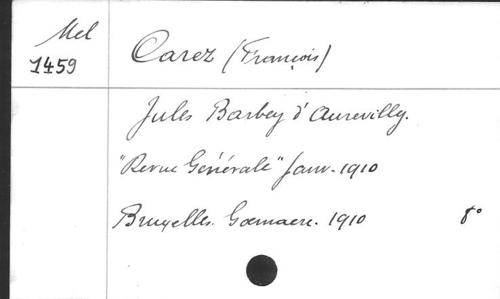 Mel
1459
Carez (François)
Jules Barbey d'Aurevilly.
"Revue Générale" Janv. 1910
Bruxelles. Goemaere. 1910 8°